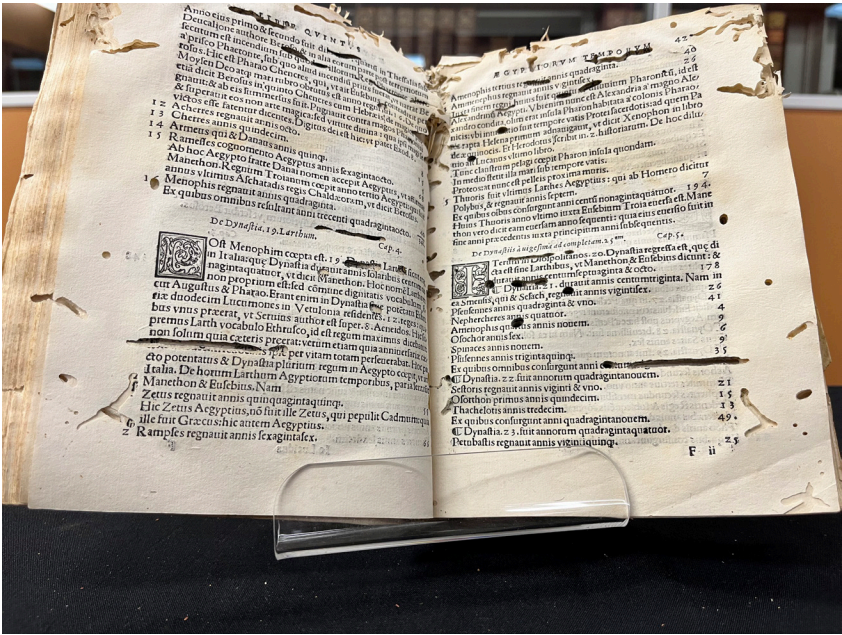 LIBER QUINTUS
Anno eius primo & secundo fuit
Deucalione authore Beroso & in alia
secutum est incendium sub
a prisco Phaetonte, sub quo aliud incendium
rosus. Hic est Pharao Chencres, qui, vt ait
Moysen Deo atqȝ mari rubro obrutus est anno regni
etiā dicit Berosus in quinto Chencres contra
gnauit: & ab eis submersus fuit. Pugnauit
& superati eos non arte magica: sed virtute diuina: qui
victos esse fateretur dicentes. Digitus dei est hic: vt patet
12 Acherres regnauit annis octo.
13 Cherres annis quindecim.
14 Armeus qui & Danaus annis quinqȝ.
15 Ramesses cognomento Aegyptus annis sexagintaocto.
Ab hoc Aegypto fratre Danai nomen accepit Aegyptus, vt
Manethon. Regnum Troianum cœpit anno tertio Aegypti
annus vltimus Aschatadis regis Chaldæorum, vt dicit Berosus.
16 Menophis regnauit annis quadraginta.
Ex quibus omnibus resultant anni trecenti quadragintaocto.
De Dynastia. 19. Larthum. Cap. 4.
POst Menophim cœpta est. 19 Dynastia
in Italia: quæ Dynastia durauit annis solaribus
nagintaquatuor, vt dicit Manethon. Hoc nomen
non proprium est: sed cōmune dignitatis vocabulum
cut Augustus & Pharao. Erant enim in Dynastia
tiæ duodecim Lucumones in Vetulonia residentes. 12. reges:
bus vnus præerat, vt Seruius author est super. 8. Aeneidos. Hic
premus Larth vocabulo Ethrusco, id est regum maximus dicebatur
non solum quia cæteris præerat: verum etiam quia anniuersarius
per vitam totam perseuerabat. Hoc
cto potentatus & Dynastia plurium regum in Aegypto cœpit,
Italia. De horum Larthum Aegyptiorum temporibus, paria
Manethon & Eusebius. Nam
Zetus regnauit annis quinquagintaquinqȝ.
Hic Zetus Aegyptius, nō fuit ille Zetus, qui pepulit Cadmum: quia
ille fuit Græcus: hic autem Aegyptius.
2 Rampses regnauit annis sexagintasex.
ÆGYPTIORUM TEMPORUM 42
Amenophis tertius regnauit annis quadraginta. 40
Annemorphis regnauit annis vigintisex. 26
Alexandrinā Aegypti. Pharon
andro condita: olim erat insula Pharon habitata a colonis Pharao-
nicis; vbi modo fuit tempore vatis Protei sacerdotis: ad quem Pa
ris rapta Helena primum adnauigauit, vt dicit Xenophon in libro
de æquiuocis. Et Herodotus scribit in. 2. historiarum. De hoc dilu
uio ait Lucanus vltimo libro.
Tunc claustrum pelagi cœpit Pharon insula quondam.
In medio stetit illa mari sub tempore vatis.
Proteos: at nunc est pelleis proxima muris.
5 Thuoris fuit vltimus Larthes Aegyptius: qui ab Homero dicitur
Polybus, & regnauit annis septem. 7
Ex quibus oībus consurgunt anni centū nonagintaquatuor. 194.
Huius Thuoris anno vltimo iuxta Eusebium Troia euersa est. Mane
thon vero dicit eam euersam anno sequenti: quia eius euersio fuit in
fine anni præcedentis iuxta principium anni subsequentis.
De Dynastiis à uigesima ad completam. 25am. Cap. 5.
Diospolitanos. 20. Dynastia regressa est, quę di
cta est sine Larthibus, vt Manethon & Eusebius dicunt: &
centumseptuaginta & octo. 178
Dynastia. 21. durauit annis centumtriginta. Nam in
ea Smensis, qui & Sesach, regnauit annis vigintisex. 26
Pseusennes annis quadraginta & vno. 41
Nephencheres annis quatuor. 4
Amenophis annis nouem. 9
Osochor annis sex. 6
Spinaces annis nouem. 9
Psusennes annis trigintaquinqȝ. 35
Ex quibus omnibus consurgunt anni
¶ Dynastia. 22 fuit annorum quadragintanouem.
Sesoris regnauit annis viginti & vno. 21
Osorthon primus annis quindecim. 15
Thachelotis annis tredecim. 13
Ex quibus consurgunt anni quadragintanouem. 49.
¶ Dynastia. 23. fuit annorum quadragintaquatuor.
Petubastis regnauit annis vigintiquinqȝ. 25
F ii